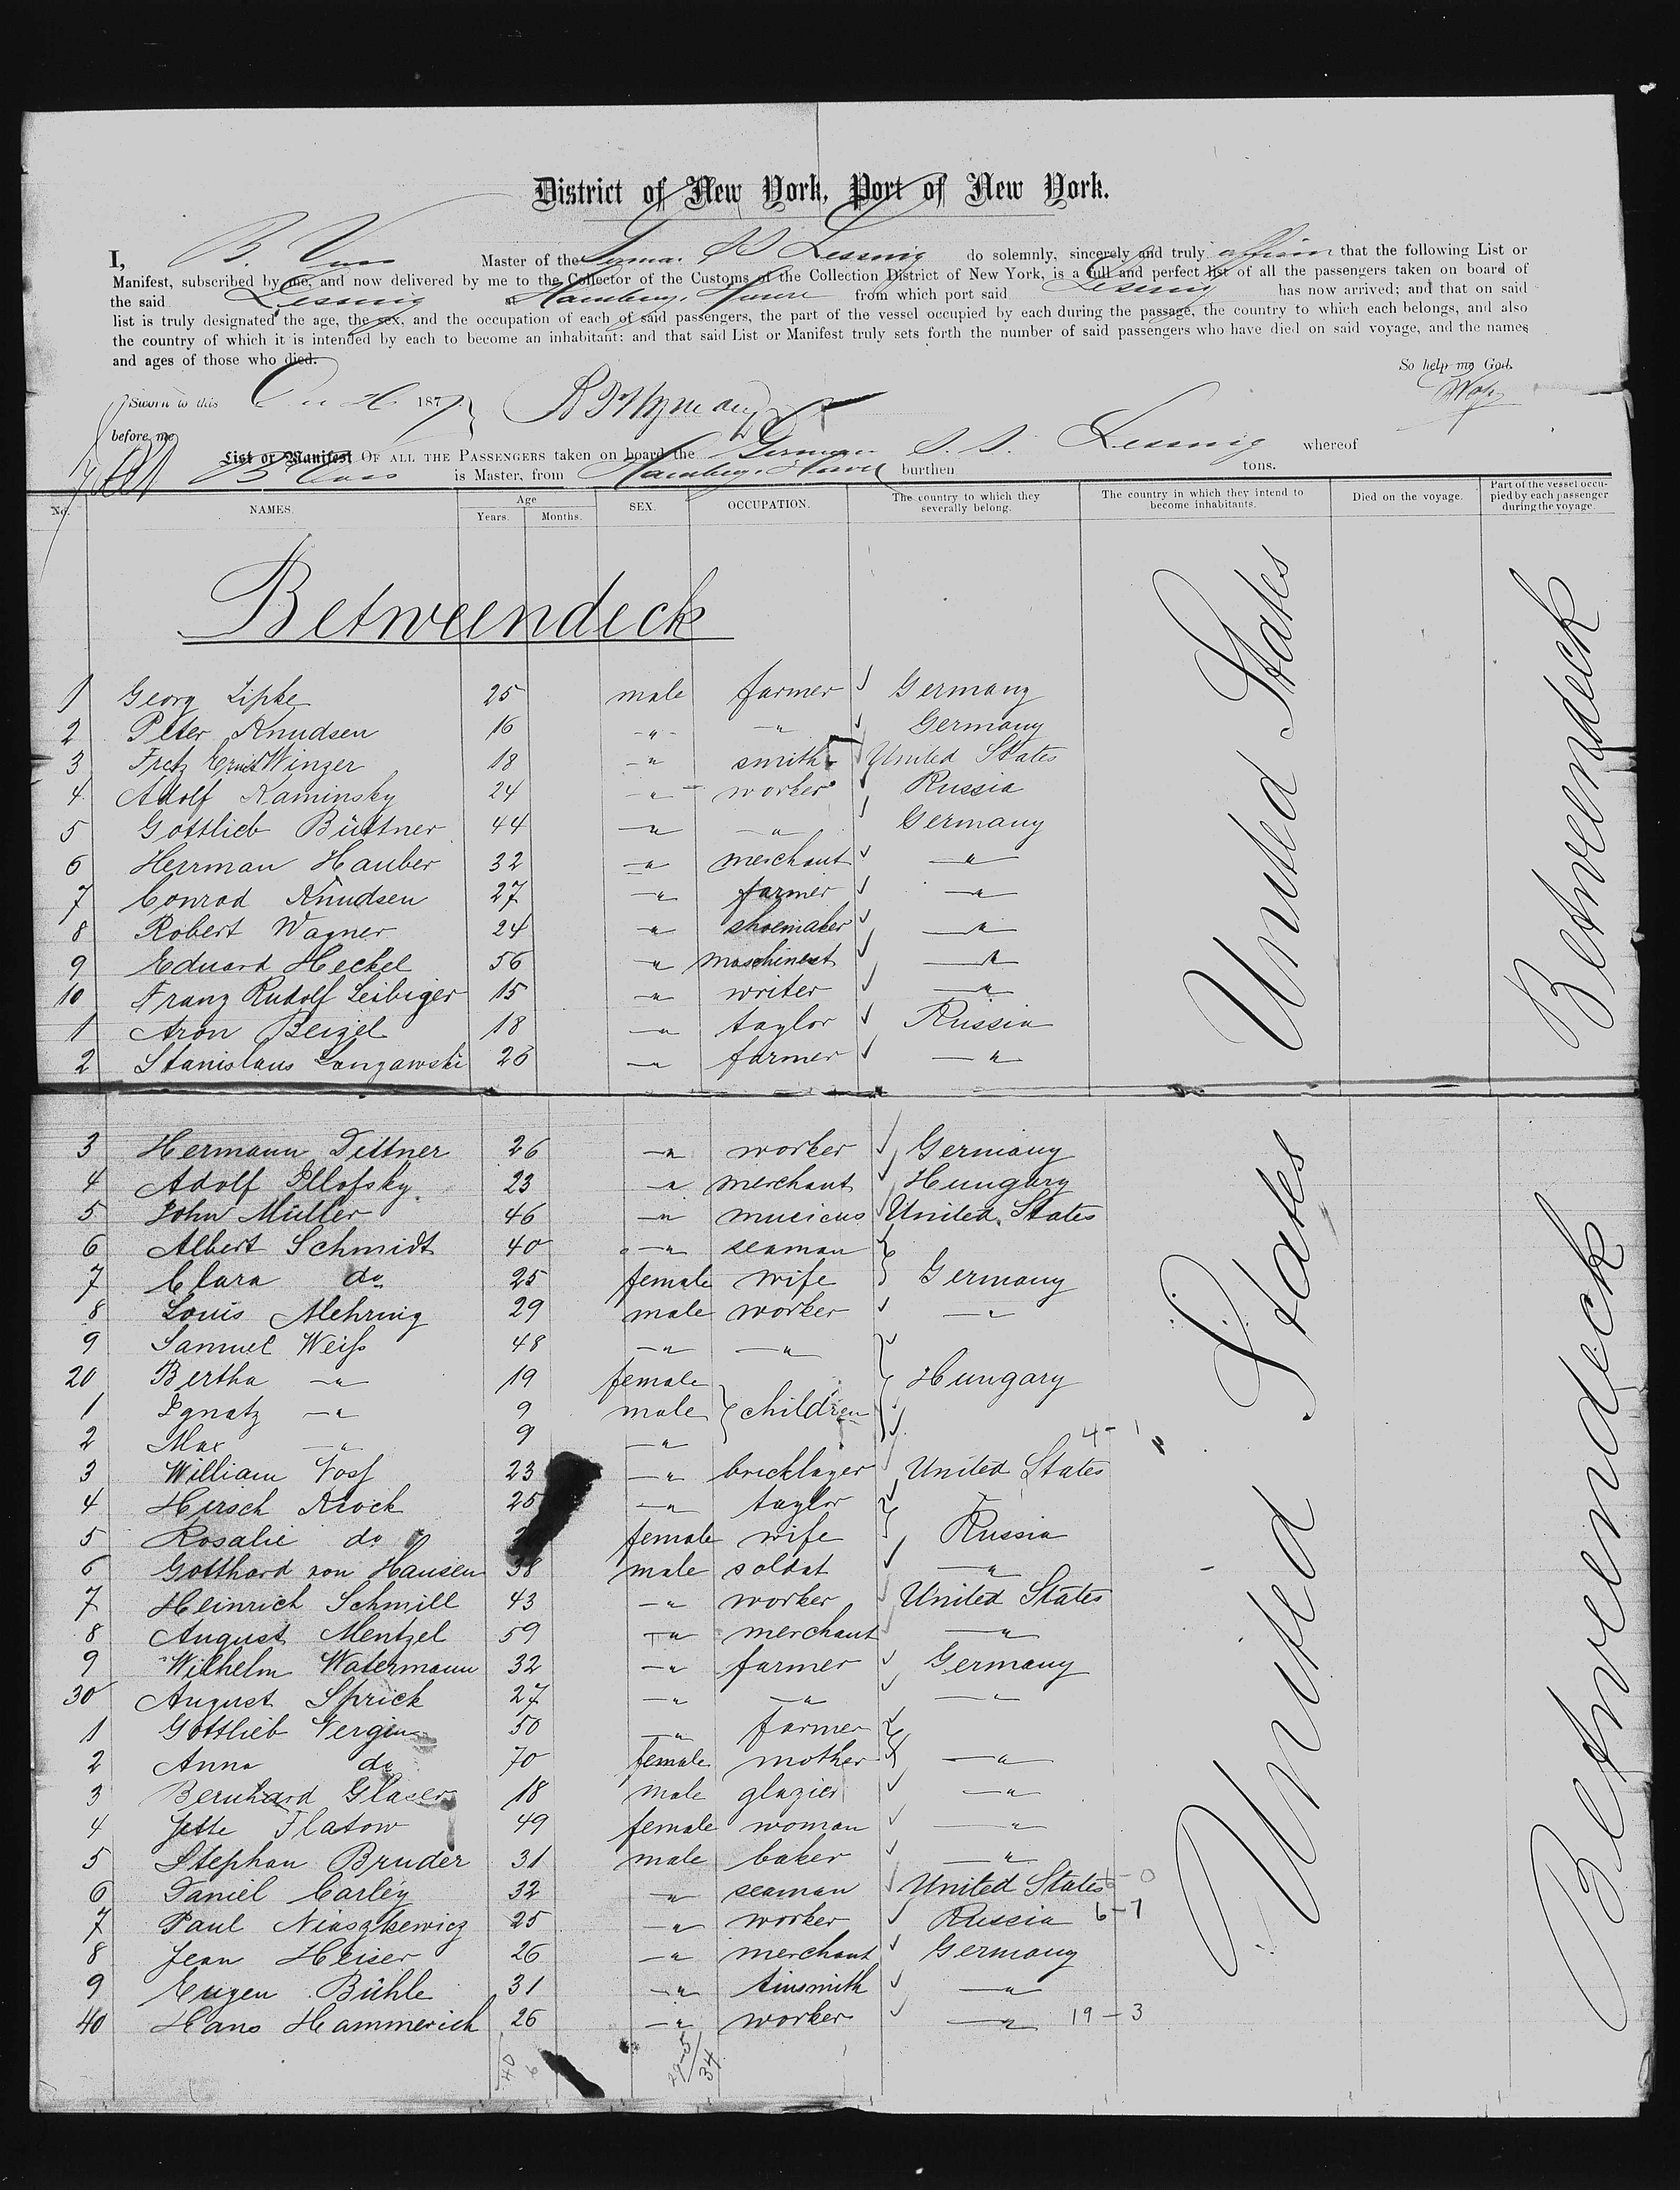 District of New York, Port of New York.
I, B. Voss Master of the German SS Lessing do solemnly, sincerely and truly affirm that the following List or
Manifest, subscribed by me, and now delivered by me to the Collector of the Customs of the Collection District of New York, is a full and perfect list of all the passengers taken on board of
the said Lessing Hamburg, Havre from which port said Lessing has now arrived; and that on said
list is truly designated the age, the sex, and the occupation of each of said passengers, the part of the vessel occupied by each during the passage, the country to which each belongs, and also
the country of which it is intended by each to become an inhabitant: and that said List or Manifest truly sets forth the number of said passengers who have died on said voyage, and the names
and ages of those who died.
So help me God.
Sworn to this 187
before me
List or Manifest OF ALL THE PASSENGERS taken on board the German S. S. Lessing whereof
B Voss is Master, from Hamburg, Havre burthen tons.
No. NAMES. Age Years. Months. SEX. OCCUPATION. The country to which they severally belong. The country in which they intend to become inhabitants. Died on the voyage. Part of the vessel occupied by each passenger during the voyage.
Betweendeck
United States
Betweendeck
1 Georg Lipke 25 male farmer Germany
2 Peter Knudsen 16 " " Germany
3 Fretz Ernst Winzer 18 " smith United States
4 Adolf Kaminsky 24 " worker Russia
5 Gottlieb Büttner 44 " " Germany
6 Herrman Hauber 32 " merchant "
7 Conrad Knudsen 27 " farmer "
8 Robert Wagner 24 " shoemaker "
9 Eduard Heckel 56 " maschinest "
10 Franz Rudolf Leibiger 15 " writer "
1 Aron Beizel 18 " taylor Russia
2 Stanislaus Longawski 26 " farmer "
3 Hermann Dittner 26 " worker Germany
4 Adolf Illofsky 23 " merchant Hungary
5 John Müller 46 " musicus United States
6 Albert Schmidt 40 " seaman
7 Clara do 25 female wife Germany
8 Louis Mehring 29 male worker "
9 Samuel Weiß 48 " "
20 Bertha " 19 female Hungary
1 Ignatz " 9 male children
2 Max " 9 "
4- 1
3 William Voss 23 " bricklayer United States
4 Hirsch Krock 25 " taylor
5 Rosalie do female wife Russia
6 Gotthard von Hansen 38 male soldat "
7 Heinrich Schmill 43 " worker United States
8 August Mentzel 59 " merchant "
9 Wilhelm Watermann 32 " farmer Germany
30 August Sprick 27 " " "
1 Gottlieb Vergin 50 " farmer
2 Anna do 70 female mother "
3 Bernhard Glaser 18 male glazier "
4 Jette Flatow 49 female woman "
5 Stephan Bruder 31 male baker "
6 Daniel Carley 32 " seaman United States
7 Paul Niaszkewicz 25 " worker Russia 6-1
8 Jean Heiser 26 " merchant Germany
9 Eugen Bühle 31 " tinsmith "
40 Hans Hammerich 26 " worker " 19-3
United States
Betweendeck